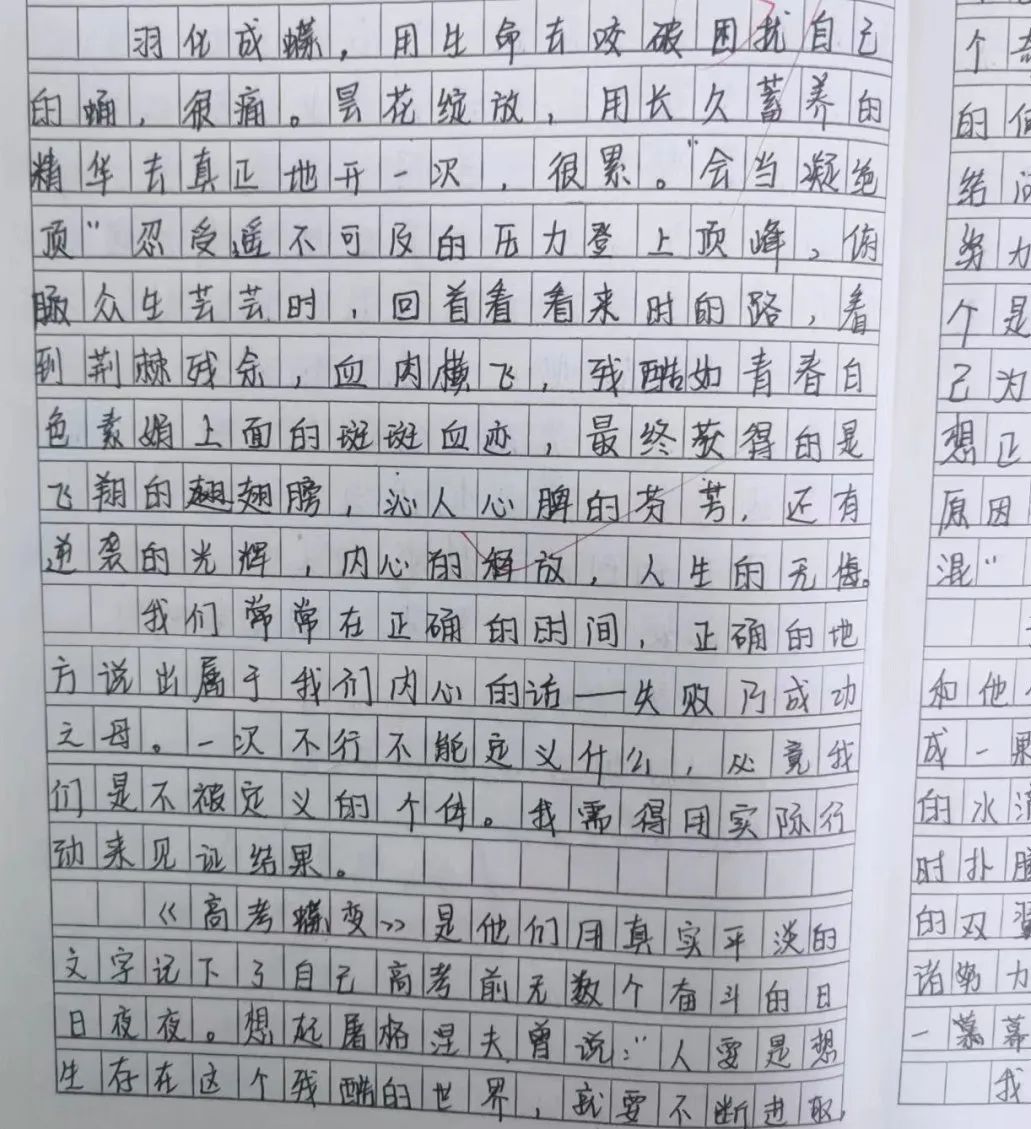 羽化成蝶，用生命去咬破困扰自己
的蛹，很痛。昙花绽放，用长久蓄养的
精华去真正地开一次，很累。“会当凝绝
顶”忍受遥不可及的压力登上顶峰，俯
瞰众生芸芸时，回首看看来时的路，看
到荆棘残余，血肉横飞，残酷如青春白
色素娟上面的斑斑血迹，最终获得的是
飞翔的翅膀，沁人心脾的芬芳，还有
逆袭的光辉，内心的释放，人生的无悔。
我们常常在正确的时间，正确的地
方说出属于我们内心的话——失败乃成功
之母。一次不行不能定义什么，必竟我
们是不被定义的个体。我需得用实际行
动来见证结果。
《高考蝶变》是他们用真实平淡的
文字记下了自己高考前无数个奋斗的日
日夜夜。想起屠格涅夫曾说：“人要是想
生存在这个残酷的世界，就要不断进取，
个
的
结
努力
个是
己为
想正
原因
混”
和他
成一
的水
时扑
的双翼
诸努力
一幕幕
我